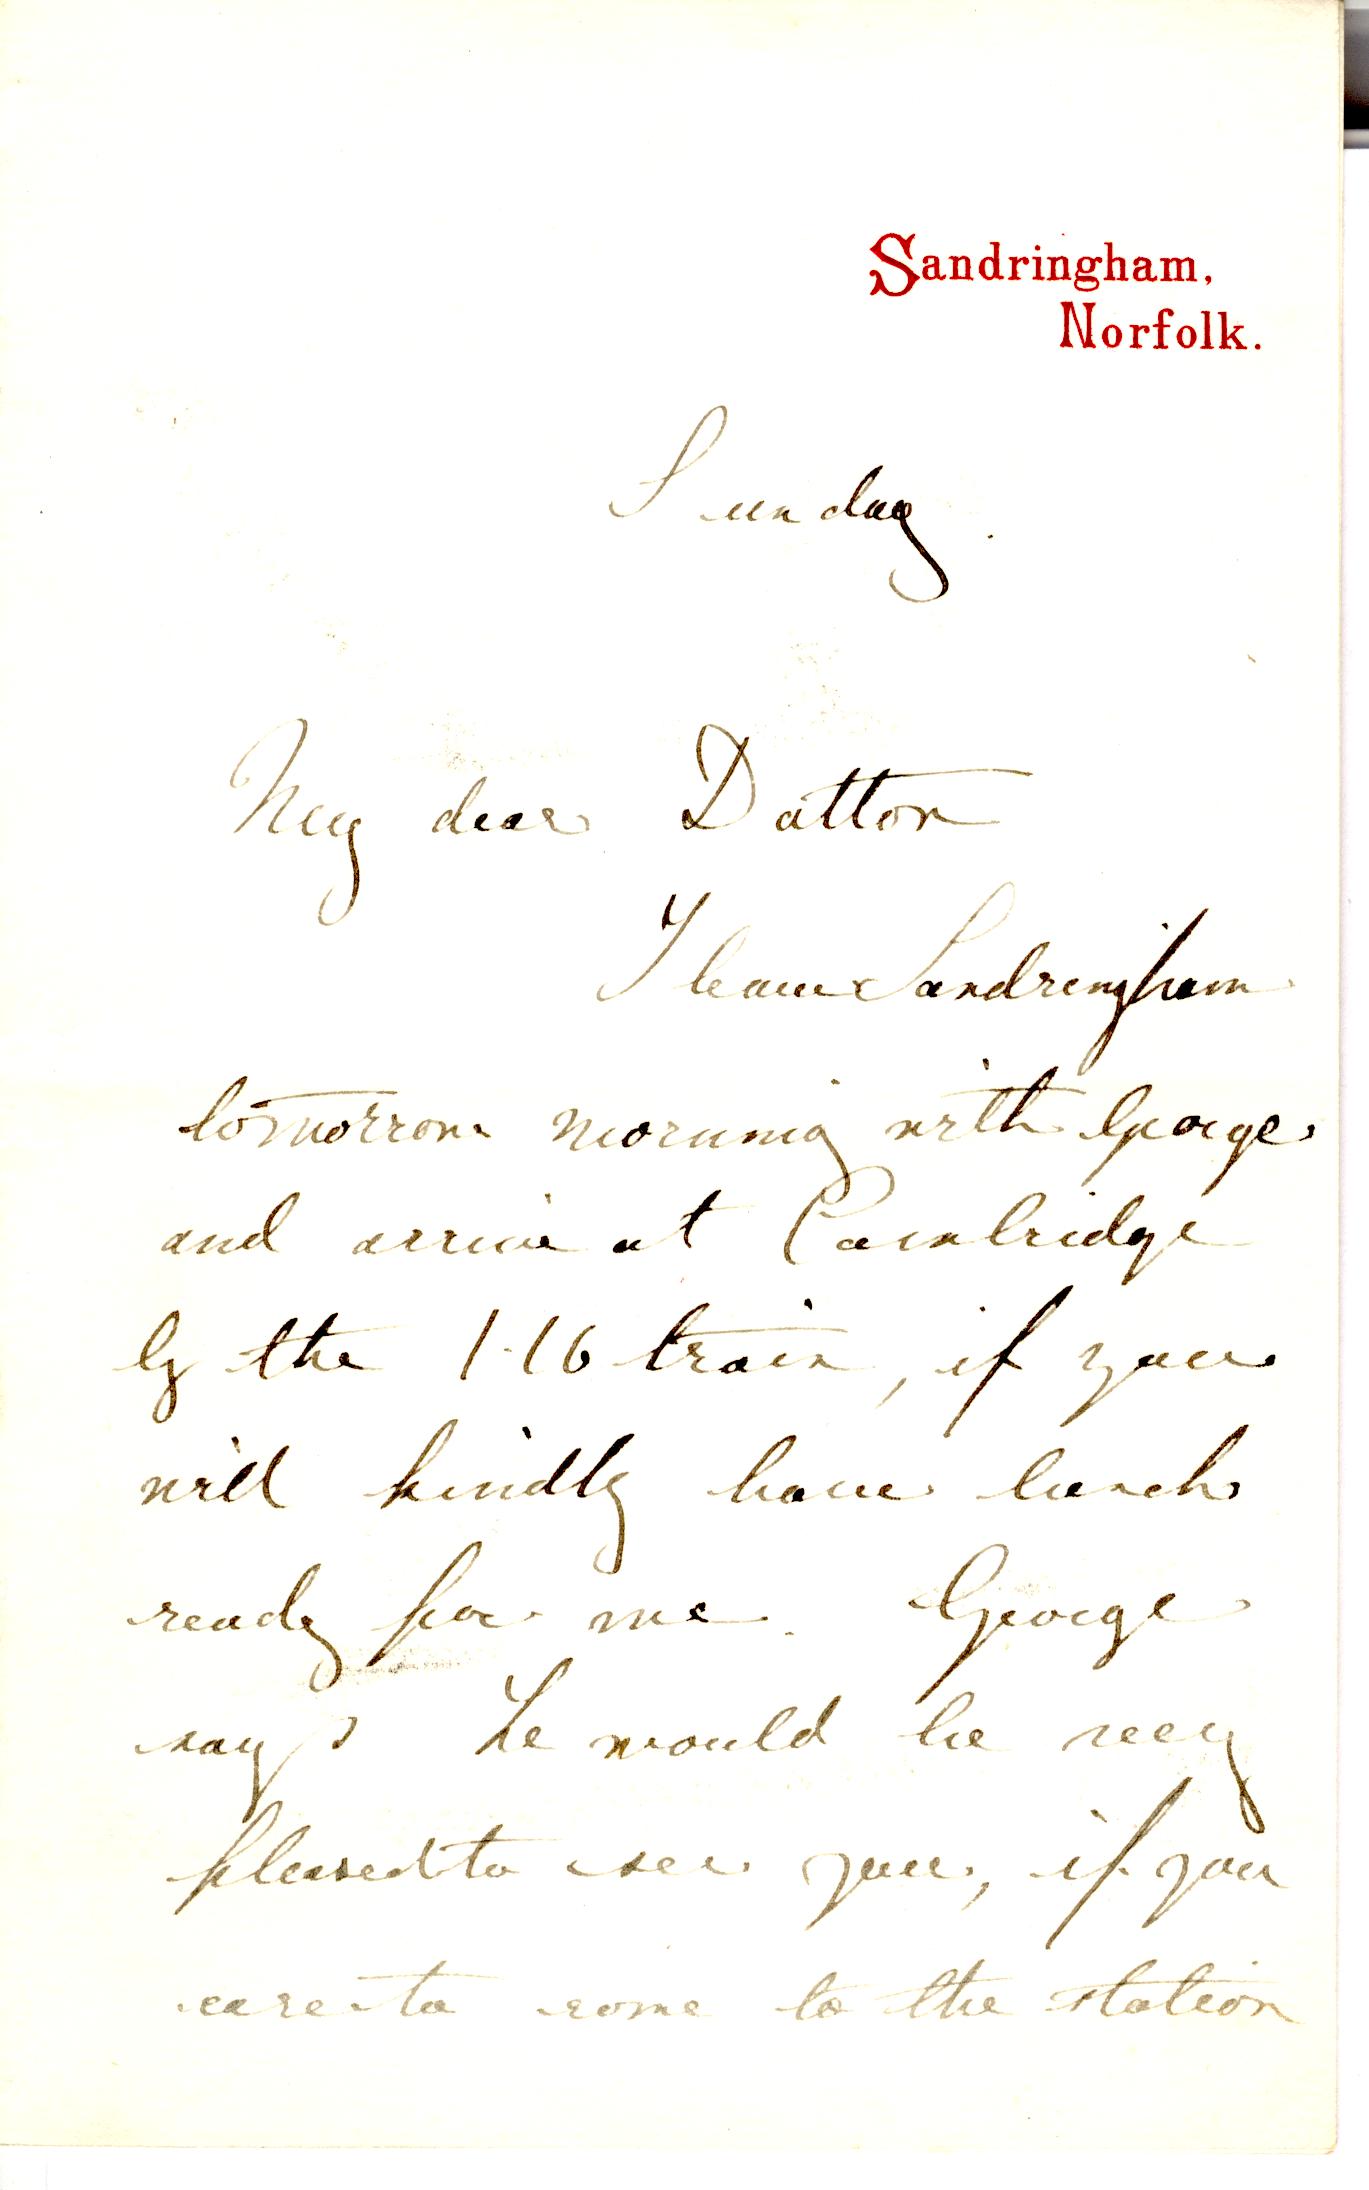 Sandringham,
Norfolk.
Sunday.
My dear Dalton
I leave Sandringham
tomorrow morning with George
and arrive at Cambridge
by the 1.16 train, if you
will kindly have lunch
ready for me. George
says he would be very
pleased to see you, if you
care to come to the station